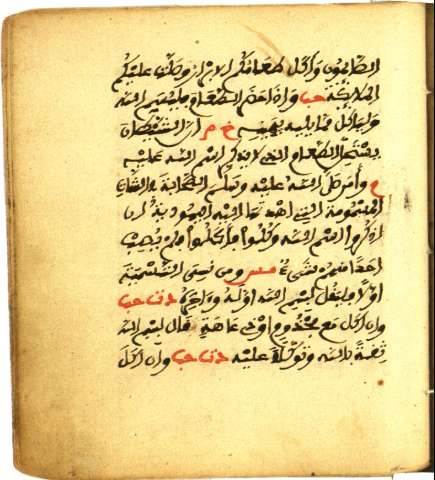 الصائمون واكل طعامكم الابرار وصلت عليكم
الملائكة حب واذا حضر الطعام فليسم الله
ولياكل مما يليه بيمينه خ م ان الشيطان
يستحل الطعام الذي لا يذكر اسم الله عليه
م وأمر صلى الله عليه وسلم الصحابة في الشاة
المسمومة التي اهدتها اليه اليهودية ان
اذكروا اسم الله وكلوا فأكلوا فلم يصب
احدا منهم شيء مس ومن نسي التسمية
اولا فليقل بسم الله اوله وءاخره د ت حب
وان اكل مع مجذوم او ذي عاهة قال بسم الله
ثقة بالله وتوكلا عليه د ت حب وان اكل